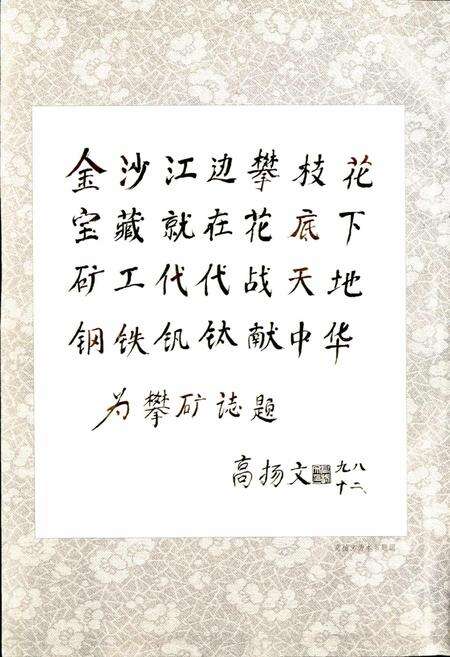 金沙江边攀枝花
宝藏就在花底下
矿工代代战天地
钢铁钒钛献中华
为攀矿誌题
高扬文
八二、
九十
高扬文为本书题词